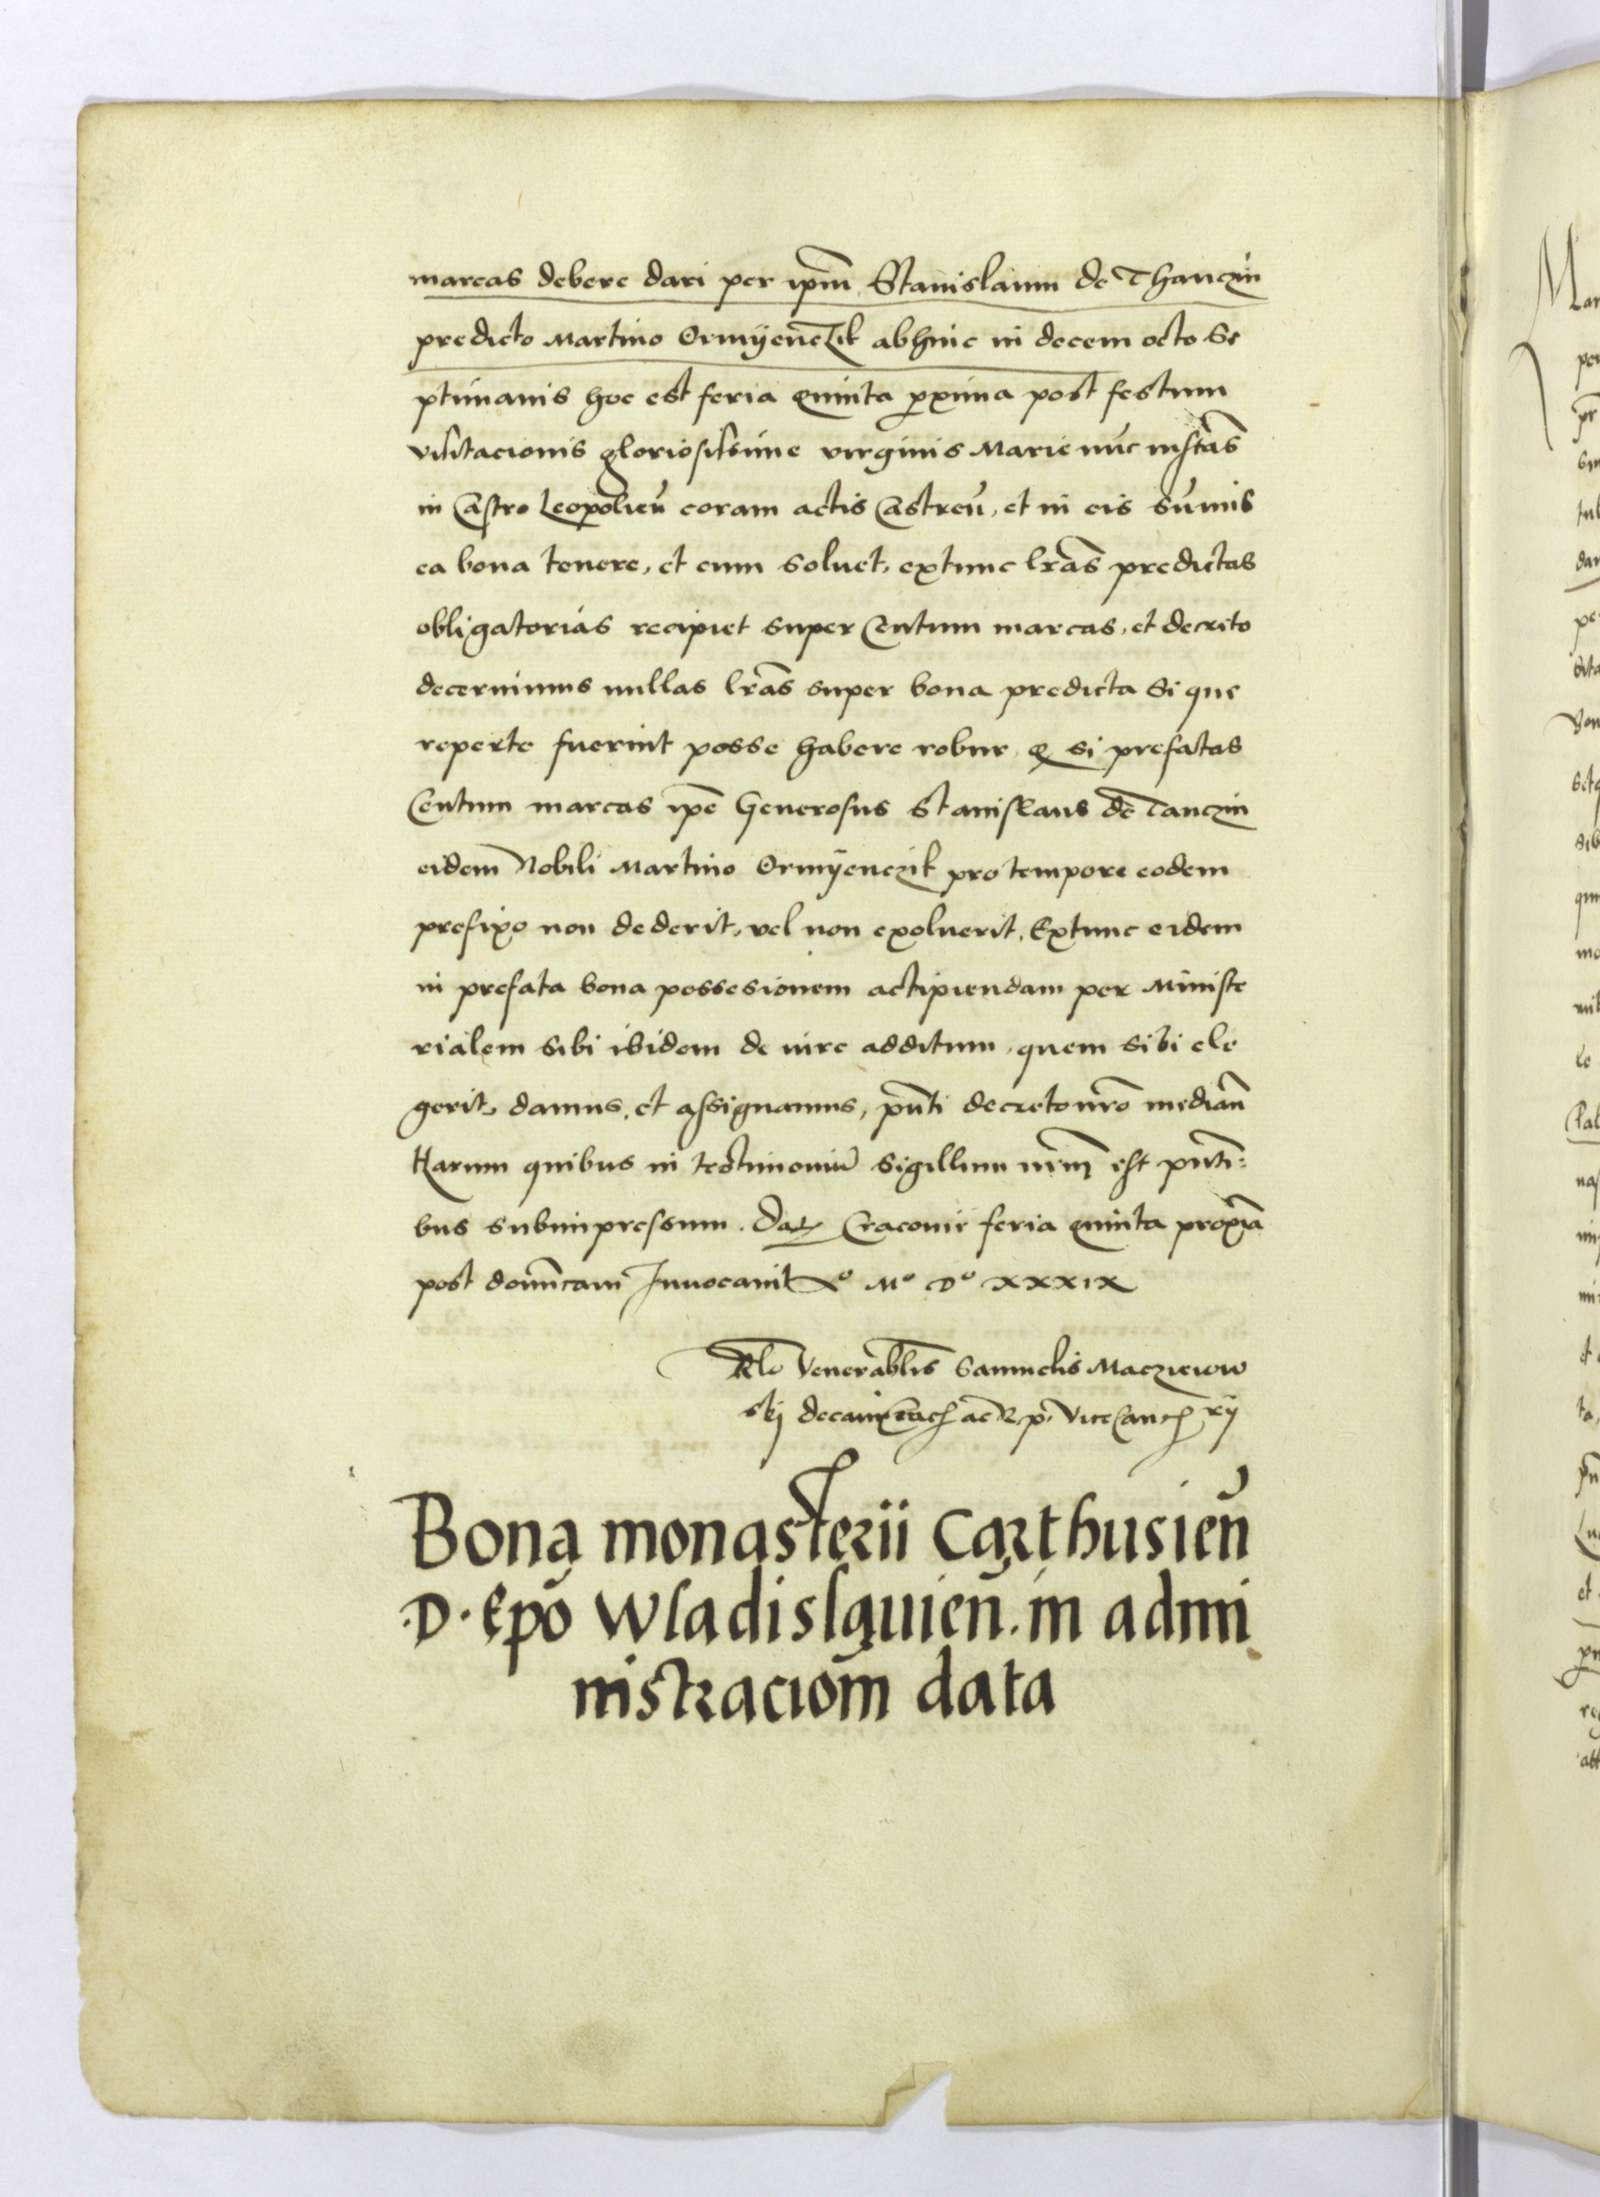 marcas debere dari per ip̃m Stanislaum de Thanczin
predicto Martino Ormÿenczik abhinc in decem octo Se
ptimanis hoc est feria quinta ꝓxima post festum
visitacionis gloriosissime virginis Marie nũc instãs
in Castro Leopolieñ coram actis Castreñ, et in eis sũmis
ea bona tenere, et cum soluet, extunc lr̃as predictas
obligatorias recipiet super Centum marcas, et decreto
decernimus nullas lr̃as super bona predicta Si que
reperte fuerint posse habere robur, Q si prefatas
Centum marcas ip̃e Generosus Stanislaus de Tanczin
eidem Nobili Martino Ormÿenczik pro tempore eodem
prefixo non dederit, vel non exoluerit, Extunc eidem
in prefata bona possesionem actipiendam per Ministe
rialem sibi ibidem de iure additum, quem sibi ele
gerit, damus, et assignamus, pñti decreto nr̃o mediañ
Harum quibus in testimoniũ sigillum nr̃m est pñti=
bus subimpressum. Daꝶ Cracouie feria quinta proxĩa
post domĩcam Inuocauit Xº Mº Dº XXXIX
Rl̃o Venerabl̃is Samuelis Macziewow
skÿ decani
Bona monasterii Carthusieñ
.D. Ep̃o Wladislauieñ. in admi
nistraciom̃ data
Mar